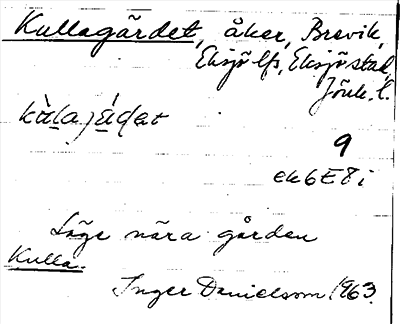 Kullagärdet, åker, Brevik,
Eksjö lfs, Eksjö stad,
Jönk. l.
9
ek6E8i
Läge nära gården
Kulla.
Inger Danielsson 1963.